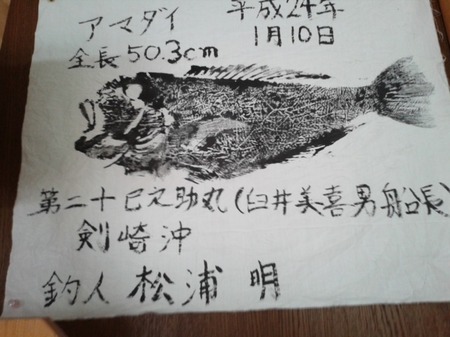 アマダイ
全長50.3cm
平成24年
1月10日
第二十巳之助丸(臼井美喜男船長)
剣崎沖
釣人 松浦 明